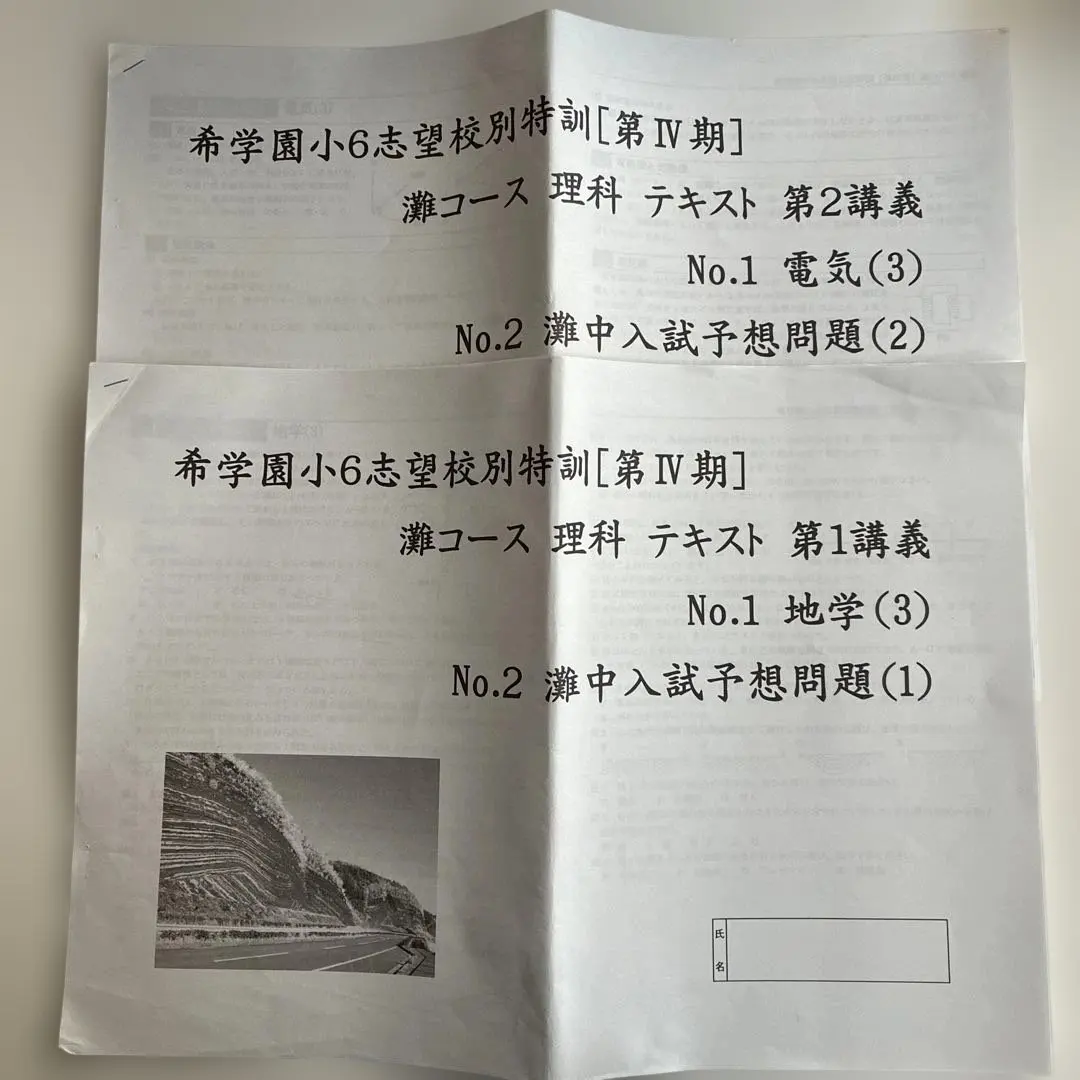 希学園小6志望校別特訓[第Ⅳ期]
灘コース 理科 テキスト 第2講義
No.1 電気(3)
No.2 灘中入試予想問題(2)
希学園小6志望校別特訓[第Ⅳ期]
灘コース 理科 テキスト 第1講義
No.1 地学(3)
No.2 灘中入試予想問題(1)
氏名